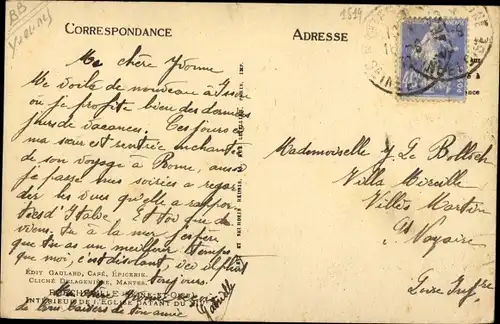 BB
1519
CORRESPONDANCE
ADRESSE
Ma chère Yvonne
Me voilà de nouveau à
où je profite bien des derniers
jours de vacances. Ces jours ci
ma sœur est rentrée enchantée
de son voyage à Rome, aussi
je passe mes soirées à regar
der les vues qu'elle a rappor
tées d'Italie. Et toi que de
viens. Tu à la mer j'espère
que tu as un meilleur temps
que moi, c'est désolant, ici il pleut
toujours.
EDIT GAULARD, CAFÉ, ÉPICERIE.
CLICHÉ DELAGENIÈRE, MANTES.
INTÉRIEUR DE L'ÉGLISE DATANT DU
Bons baisers de ton amie
Mademoiselle Y Le
Villa Mireille
Villès Martin
St Nazaire
Loire Infre